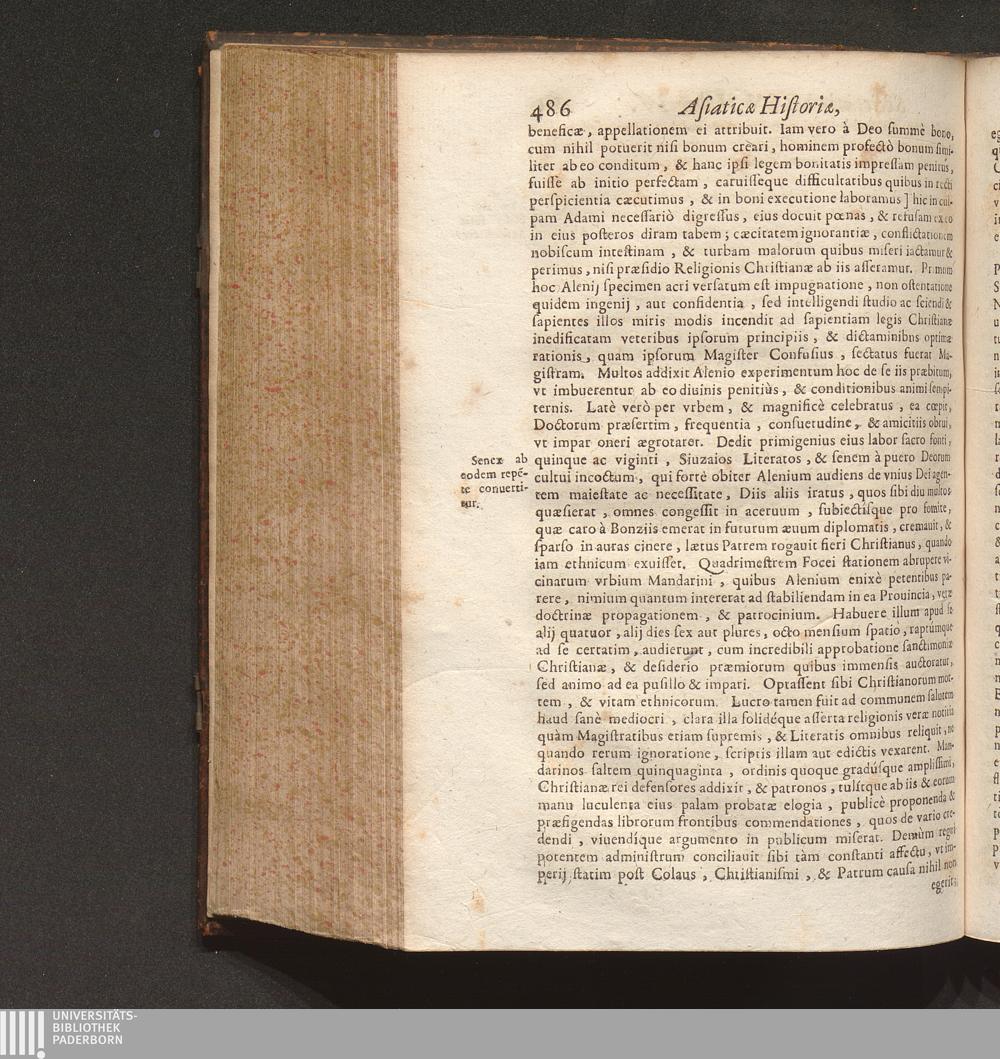 486 Asiaticæ Historiæ,
beneficæ, appellationem ei attribuit. Iam vero à Deo summè bono,
cum nihil potuerit nisi bonum creari, hominem profectò bonum simi-
liter ab eo conditum, & hanc ipsi legem bonitatis impressam penitùs,
fuisse ab initio perfectam, caruisseque difficultatibus quibus in recti
perspicientia cæcutimus, & in boni executione laboramus] hic in cul-
pam Adami necessariò digressus, eius docuit pœnas, & refusam ex eo
in eius posteros diram tabem; cæcitatem ignorantiæ, conflictationem
nobiscum intestinam, & turbam malorum quibus miseri iactamur &
perimus, nisi præsidio Religionis Christianæ ab iis asseramur. Primum
hoc Alenij specimen acri versatum est impugnatione, non ostentatione
quidem ingenij, aut confidentia, sed intelligendi studio ac sciendi &
sapientes illos miris modis incendit ad sapientiam legis Christianæ
inedificatam veteribus ipsorum principiis, & dictaminibns optimæ
rationis, quam ipsorum Magister Confusius, sectatus fuerat Ma-
gistram. Multos addixit Alenio experimentum hoc de se iis præbitum,
vt imbuerentur ab eo diuinis penitiùs, & conditionibus animi sempi-
ternis. Latè verò per vrbem, & magnificè celebratus, ea cœpit,
Doctorum præsertim, frequentia, consuetudine, & amicitiis obrui,
vt impar oneri ægrotaret. Dedit primigenius eius labor sacro fonti,
quinque ac viginti, Siuzaios Literatos, & senem à puero Deorum
cultui incoctum, qui fortè obiter Alenium audiens de vnius Dei agen-
tem maiestate ac necessitate, Diis aliis iratus, quos sibi diu multos
quæsierat, omnes congessit in aceruum, subiectisque pro fomite,
quæ caro à Bonziis emerat in futurum æuum diplomatis, cremauit, &
sparso in auras cinere, lætus Patrem rogauit fieri Christianus, quando
iam ethnicum exuisset. Quadrimestrem Focei stationem abrupere vi-
cinarum vrbium Mandarini, quibus Alenium enixè petentibus pa-
rere, nimium quantum intererat ad stabiliendam in ea Prouincia, veræ
doctrinæ propagationem, & patrocinium. Habuere illum apud se
alij quatuor, alij dies sex aut plures, octo mensium spatio, raptúmque
ad se certatim, audierunt, cum incredibili approbatione sanctimoniæ
Christianæ, & desiderio præmiorum quibus immensis auctoratur,
sed animo ad ea pusillo & impari. Optassent sibi Christianorum mor-
tem, & vitam ethnicorum. Lucro tamen fuit ad communem salutem
haud sanè mediocri, clara illa solidéque asserta religionis veræ notitia
quàm Magistratibus etiam supremis, & Literatis omnibus reliquit, ne
quando rerum ignoratione, scriptis illam aut edictis vexarent. Man-
darinos saltem quinquaginta, ordinis quoque gradúsque amplissimi,
Christianæ rei defensores addixit, & patronos, tulitque ab iis & eorum
manu luculenta eius palam probatæ elogia, publicè proponenda &
præfigendas librorum frontibus commendationes, quos de vario cre-
dendi, viuendíque argumento in publicum miserat. Demùm reguli
potentem administrum conciliauit sibi tàm constanti affectu, vt im-
perij statim post Colaus, Christianismi, & Patrum causa nihil non
egerit;
Senex ab
eodem repé-
te conuerti-
tur.
UNIVERSITÄTS-
BIBLIOTHEK
PADERBORN